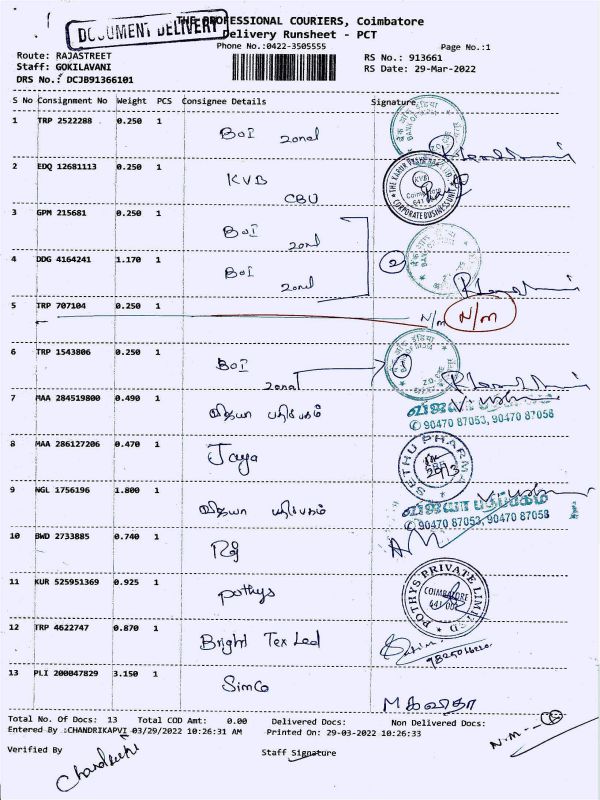 DOCUMENT DELIVERY
THE PROFESSIONAL COURIERS, Coimbatore
Delivery Runsheet - PCT
Phone No.:0422-3505555
Page No.:1
Route: RAJASTREET
RS No.: 913661
Staff: GOKILAVANI
RS Date: 29-Mar-2022
DRS No.: DCJB91366101
S No Consignment No Weight PCS Consignee Details Signature
1 TRP 2522288 0.250 1 BOI zonal
2 EDQ 12681113 0.250 1 KVB CBU
CORPORATE BUSINESS UNIT
3 GPM 215681 0.250 1 BOI zonal
4 DDG 4164241 1.170 1 BOI zonal 2
5 TRP 707104 0.250 1 N/m N/m
6 TRP 1543806 0.250 1 BOI zonal
7 MAA 284519800 0.490 1
90470 87053, 90470 87058
8 MAA 286127206 0.470 1 Jaya
SETHU PHARMA
9 NGL 1756196 1.800 1
90470 87053, 90470 87058
10 BWD 2733885 0.740 1
11 KUR 525951369 0.925 1 pothys
POTHYS PRIVATE LIMITED
COIMBATORE
12 TRP 4622747 0.870 1 Bright Tex Led
13 PLI 200047829 3.150 1 SimCo
Total No. Of Docs: 13 Total COD Amt: 0.00 Delivered Docs: Non Delivered Docs:
Entered By :CHANDRIKAPVI 03/29/2022 10:26:31 AM Printed On: 29-03-2022 10:26:33
Verified By
Staff Signature